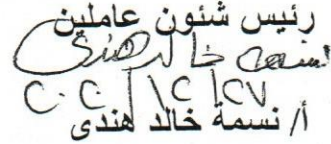 رئيس شئون عاملين
نسمه خالد هندى
٢٠٢١/١٢/٢٧
أ/ نسمة خالد هندى